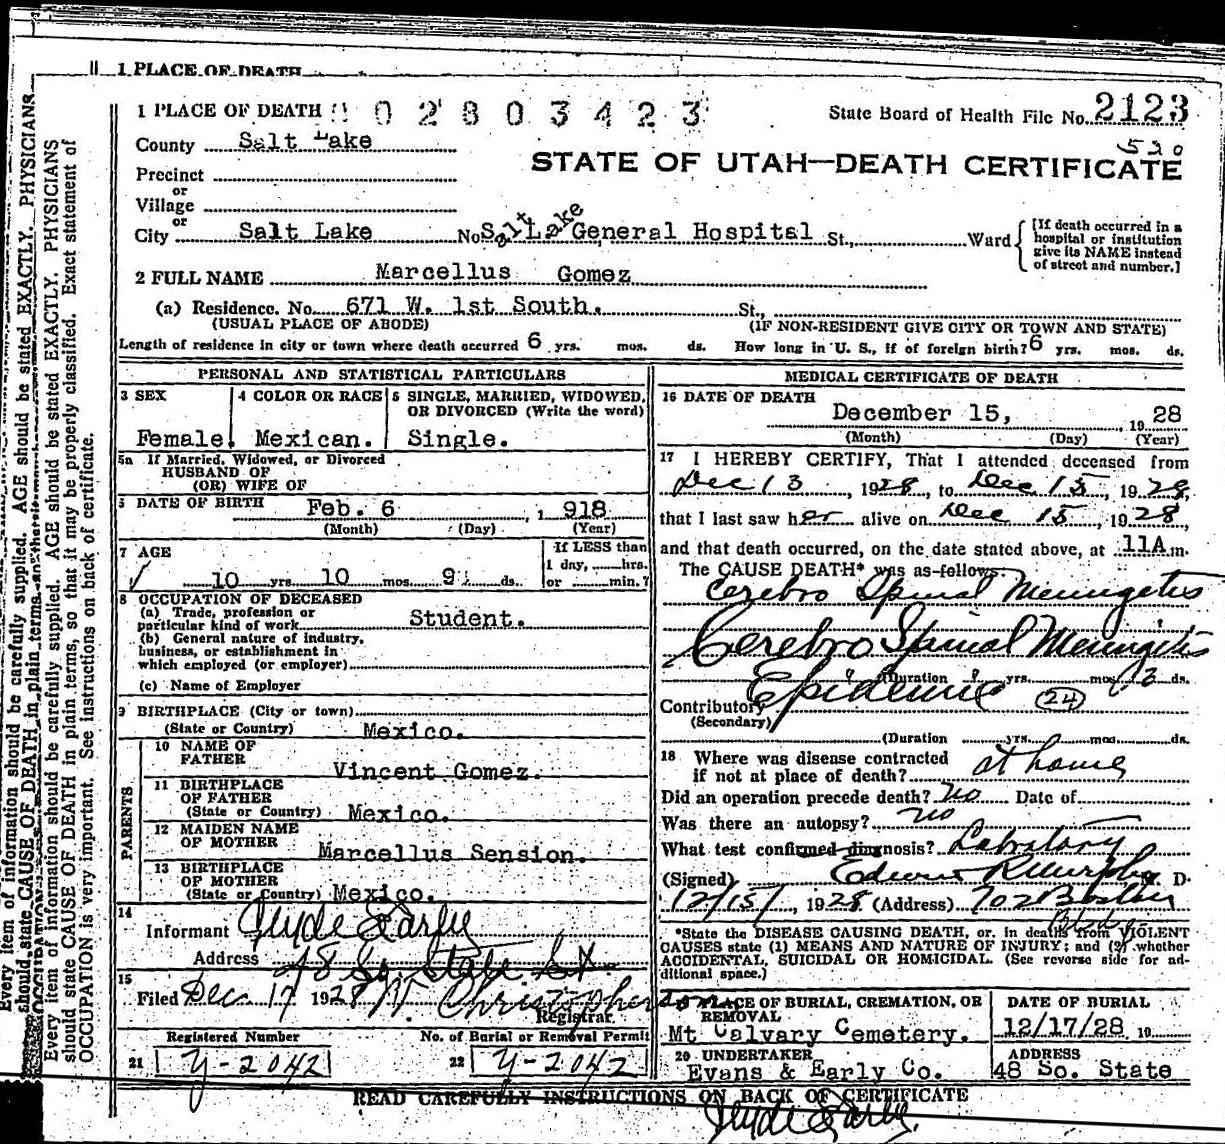 1 PLACE OF DEATH
1 PLACE OF DEATH 0 2 8 0 3 4 2 3
State Board of Health File No. 2123
County Salt Lake
530
STATE OF UTAH—DEATH CERTIFICATE
Precinct
or
Village
or
City Salt Lake No. Salt Lake General Hospital St., Ward
[If death occurred in a hospital or institution give its NAME instead of street and number.]
2 FULL NAME Marcellus Gomez
(a) Residence. No. 671 W. 1st South. St.,
(USUAL PLACE OF ABODE) (IF NON-RESIDENT GIVE CITY OR TOWN AND STATE)
Length of residence in city or town where death occurred 6 yrs. mos. ds. How long in U. S., if of foreign birth? 6 yrs. mos. ds.
PERSONAL AND STATISTICAL PARTICULARS
3 SEX
Female.
4 COLOR OR RACE
Mexican.
5 SINGLE, MARRIED, WIDOWED, OR DIVORCED (Write the word)
Single.
5a If Married, Widowed, or Divorced
HUSBAND OF
(OR) WIFE OF
6 DATE OF BIRTH Feb. 6 , 1 918
(Month) (Day) (Year)
7 AGE
10 yrs. 10 mos. 9 ds.
If LESS than
1 day, hrs.
or min.?
8 OCCUPATION OF DECEASED
(a) Trade, profession or
particular kind of work Student.
(b) General nature of industry,
business, or establishment in
which employed (or employer)
(c) Name of Employer
9 BIRTHPLACE (City or town)
(State or Country) Mexico.
PARENTS
10 NAME OF
FATHER Vincent Gomez.
11 BIRTHPLACE
OF FATHER
(State or Country) Mexico.
12 MAIDEN NAME
OF MOTHER Marcellus Sension.
13 BIRTHPLACE
OF MOTHER
(State or Country) Mexico.
14
Informant Clyde Early
Address 48 So. State St
15
Filed Dec 17 1928 W. Christopherson
Registrar.
Registered Number
21 Y-2042
No. of Burial or Removal Permit
22 Y-2042
MEDICAL CERTIFICATE OF DEATH
16 DATE OF DEATH
December 15, 19 28
(Month) (Day) (Year)
17 I HEREBY CERTIFY, That I attended deceased from
Dec 13, 1928, to Dec 15, 1928,
that I last saw her alive on Dec 15, 1928,
and that death occurred, on the date stated above, at 11A m.
The CAUSE DEATH* was as follows:
Cerebro Spinal Meningetis
Cerebro Spinal Meningitis
(Duration yrs. mos. 3 ds.
Epidemic (24)
Contributory
(Secondary)
(Duration yrs. mos. ds.
18 Where was disease contracted
if not at place of death? at home
Did an operation precede death? No Date of
Was there an autopsy? no
What test confirmed diagnosis? Labratory
(Signed) Edwin R Murphy M. D.
12/15/, 1928 (Address) 702 Boston
Bldg
*State the DISEASE CAUSING DEATH, or, in deaths from VIOLENT
CAUSES state (1) MEANS AND NATURE OF INJURY; and (2) whether
ACCIDENTAL, SUICIDAL OR HOMICIDAL. (See reverse side for ad-
ditional space.)
PLACE OF BURIAL, CREMATION, OR
REMOVAL
Mt Calvary Cemetery.
DATE OF BURIAL
12/17/28 19
20 UNDERTAKER
Evans & Early Co.
ADDRESS
48 So. State
READ CAREFULLY INSTRUCTIONS ON BACK OF CERTIFICATE
Clyde Early.
Every item of information should be carefully supplied. AGE should be stated EXACTLY. PHYSICIANS
should state CAUSE OF DEATH in plain terms
Every item of information should be carefully supplied. AGE should be stated EXACTLY. PHYSICIANS
should state CAUSE OF DEATH in plain terms, so that it may be properly classified. Exact statement of
OCCUPATION is very important. See instructions on back of certificate.